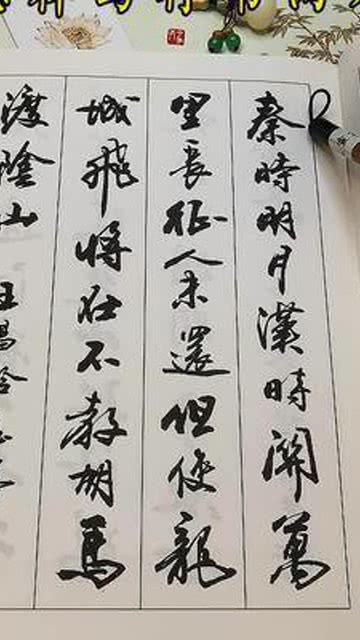 秦時明月漢時關萬
里長征人未還但使龍
城飛將在不教胡馬
渡陰山 王昌齡